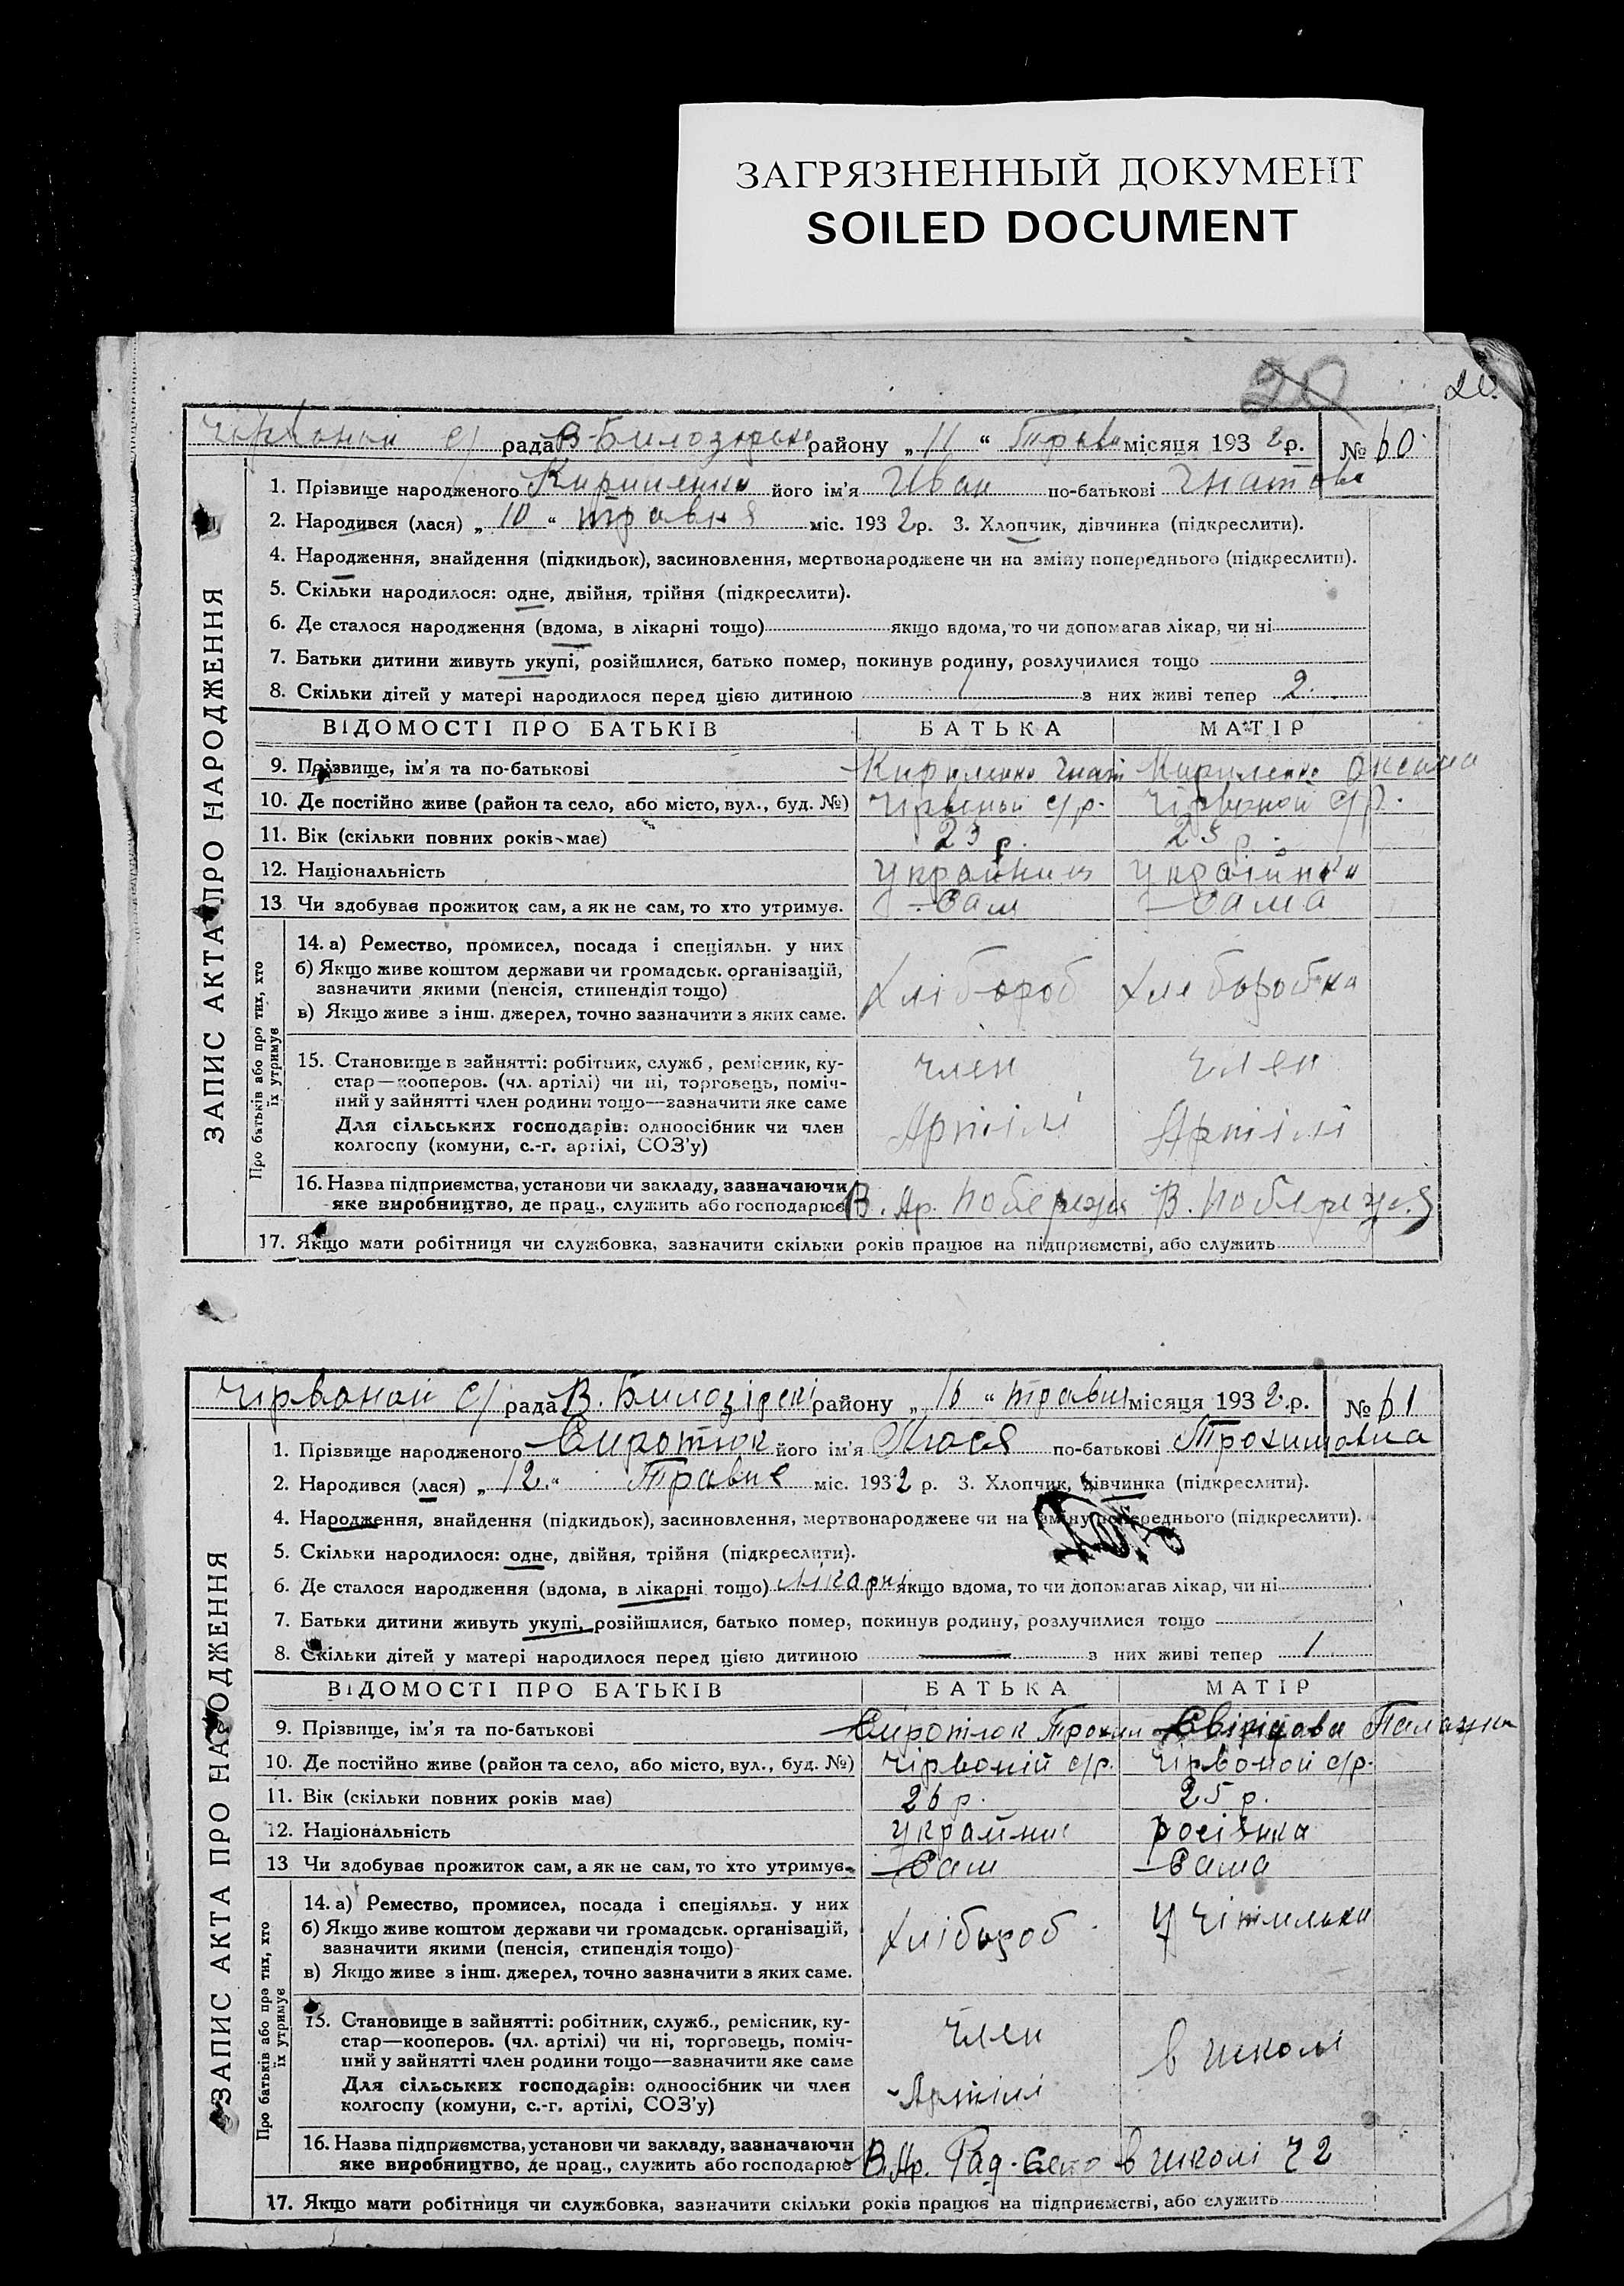 ЗАГРЯЗНЕННЫЙ ДОКУМЕНТ
SOILED DOCUMENT
20
20.
Червоной с/ рада В-Билозерського району „ 11 “ Травн місяця 193 2 р. № 60
1. Прізвище народженого Кириленко його ім'я Иван по-батькові Гнатова
2. Народився (лася) „ 10 “ травня міс. 193 2 р. 3. Хлопчик, дівчинка (підкреслити).
4. Народження, знайдення (підкидьок), засиновлення, мертвонароджене чи на зміну попереднього (підкреслити).
5. Скільки народилося: одне, двійня, трійня (підкреслити).
6. Де сталося народження (вдома, в лікарні тощо) якщо вдома, то чи допомагав лікар, чи ні
7. Батьки дитини живуть укупі, розійшлися, батько помер, покинув родину, розлучилися тощо
8. Скільки дітей у матері народилося перед цією дитиною 1 з них живі тепер 2.
ВІДОМОСТІ ПРО БАТЬКІВ БАТЬКА МАТІР
9. Прізвище, ім'я та по-батькові Кириленко Гнат Кириленко Оксана
10. Де постійно живе (район та село, або місто, вул., буд. №) Червоной с/р. Червоной с/р.
11. Вік (скільки повних років має) 23 р. 23 р.
12. Національність Українець Українка
13 Чи здобував прожиток сам, а як не сам, то хто утримує. Сам Сама
14. а) Ремество, промисел, посада і спеціяльн. у них
б) Якщо живе коштом держави чи громадськ. організацій,
зазначити якими (пенсія, стипендія тощо) хлібороб хлиборобка
в) Якщо живе з інш. джерел, точно зазначити з яких саме.
15. Становище в зайнятті: робітник, служб., ремісник, ку-
стар—кооперов. (чл. артілі) чи ні, торговець, поміч- член член
ний у зайнятті член родини тощо—зазначити яке саме
Для сільських господарів: одноосібник чи член Артілі Артілі
колгоспу (комуни, с.-г. артілі, СОЗ'у)
16. Назва підприємства, установи чи закладу, зазначаючи
яке виробництво, де прац., служить або господарює В. Ар. Побережя В. Побережя
17. Якщо мати робітниця чи службовка, зазначити скільки років працює на підприємстві, або служить
ЗАПИС АКТА ПРО НАРОДЖЕННЯ
Про батьків або про тих, хто їх утримує
Чірвоной с/ рада В. Билозірскі району „ 16 “ травня місяця 193 2 р. № 61
1. Прізвище народженого Сиротюк його ім'я Люся по-батькові Трохимовна
2. Народився (лася) „ 12 “ Травня міс. 193 2 р. 3. Хлопчик, дівчинка (підкреслити).
4. Народження, знайдення (підкидьок), засиновлення, мертвонароджене чи на зміну попереднього (підкреслити).
5. Скільки народилося: одне, двійня, трійня (підкреслити).
6. Де сталося народження (вдома, в лікарні тощо) Лікарні якщо вдома, то чи допомагав лікар, чи ні
7. Батьки дитини живуть укупі, розійшлися, батько помер, покинув родину, розлучилися тощо
8. Скільки дітей у матері народилося перед цією дитиною — з них живі тепер 1
ВІДОМОСТІ ПРО БАТЬКІВ БАТЬКА МАТІР
9. Прізвище, ім'я та по-батькові Сиротюк Трохим Палажка
10. Де постійно живе (район та село, або місто, вул., буд. №) Чірвоній с/р. Чірвоной с/р.
11. Вік (скільки повних років має) 26 р. 25 р.
12. Національність Українец росіянка
13 Чи здобував прожиток сам, а як не сам, то хто утримує. Сам Сама
14. а) Ремество, промисел, посада і спеціяльн. у них
б) Якщо живе коштом держави чи громадськ. організацій, хлібороб Учітилька
зазначити якими (пенсія, стипендія тощо)
в) Якщо живе з інш. джерел, точно зазначити з яких саме.
15. Становище в зайнятті: робітник, служб., ремісник, ку-
стар—кооперов. (чл. артілі) чи ні, торговець, поміч- член в школі
ний у зайнятті член родини тощо—зазначити яке саме
Для сільських господарів: одноосібник чи член Артілі
колгоспу (комуни, с.-г. артілі, СОЗ'у)
16. Назва підприємства, установи чи закладу, зазначаючи
яке виробництво, де прац., служить або господарює В. Ар. Рад. Село в школі Ч 2
17. Якщо мати робітниця чи службовка, зазначити скільки років працює на підприємстві, або служить
ЗАПИС АКТА ПРО НАРОДЖЕННЯ
Про батьків або про тих, хто їх утримує